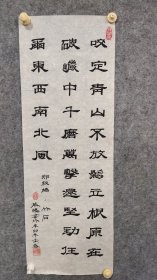 咬定青山不放鬆立根原在
破巖中千磨萬擊還堅勁任
爾東西南北風
鄭板橋 竹石